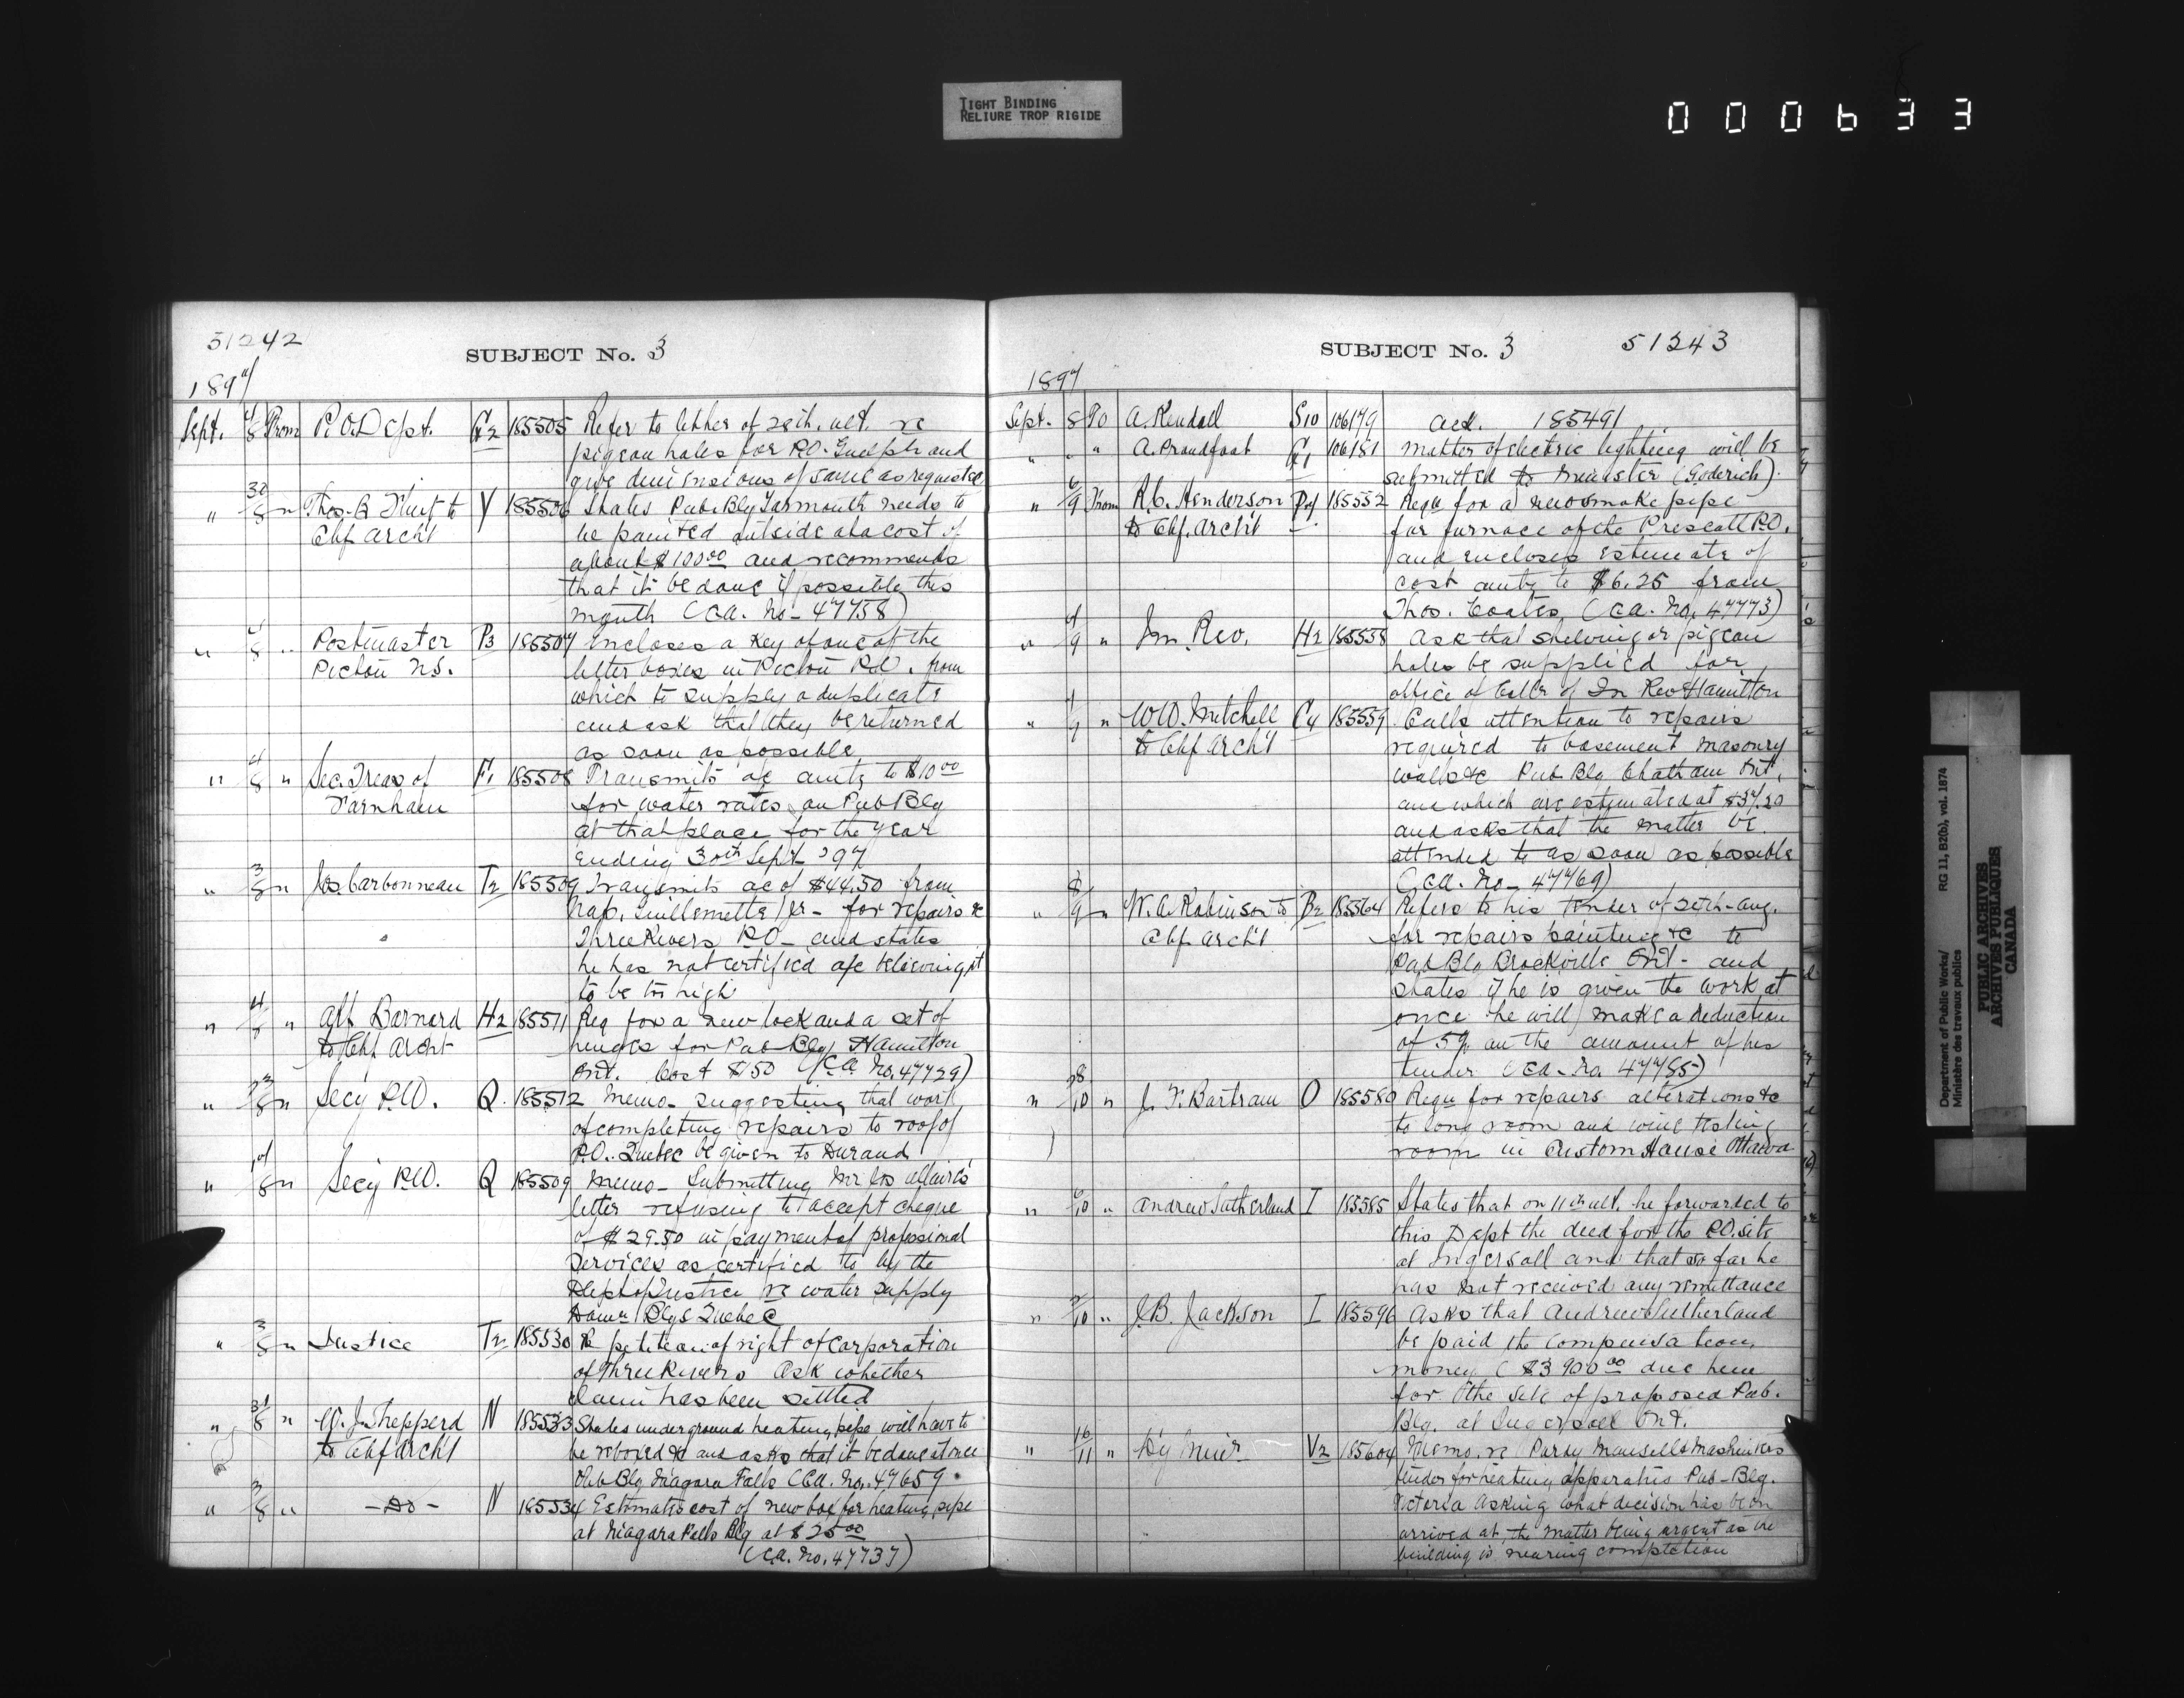 TIGHT BINDING
RELIURE TROP RIGIDE
000633
51242
SUBJECT No. 3
1897
Sept. 4/8 From P.O. Dept. G2 185505 Refer to letter of 28th. ult. re
pigeon holes for P.O. Guelph and
give dimensions of same as requested
" 30/8 " Thos. B. Flint to Y 185506 States Pub. Blg Yarmouth needs to
Chf Archt be painted outside at a cost of
about $100.00 and recommends
that it be done if possible this
month (CA. No- 47758)
" 4/8 " Postmaster P3 185507 Encloses a key of one of the
Pictou N.S. letter boxes in Pictou P.O. from
which to supply a duplicate
and ask that they be returned
as soon as possible
" 4/8 " Sec. Treas of F1 185508 Transmits a/c amtg to $10.00
Farnham for water rates on Pub Blg
at that place for the year
ending 30th Sept '97
" 3/8 " Jos. Carbonneau T2 185509 Transmits ac of $44.50 from
Nap. Guillemette Jr- for repairs &c
Three Rivers P.O- and states
he has not certified a/c believing it
to be too high
" 4/8 " Alf Barnard H2 185511 Req for a new lock and a set of
to Chf Archt hinges for Pub Blg Hamilton
Ont. Cost $150 (C.A. No. 47729)
" /8 " Secy P.W. Q. 185512 Memo- suggesting that work
of completing repairs to roof of
P.O. Quebec be given to Durand
" /8 " Secy P.W. Q 185509 Memo- Submitting Mr Jos
letter refusing to accept cheque
of $29.50 in payment of professional
services as certified to by the
Dept of Justice re water supply
Blgs Quebec
" 3/8 " Justice T2 185530 Re petition of right of Corporation
of Three Rivers Ask whether
claim has been settled
" 31/8 " W. J. Shepperd N 185533 States underground heating pipe will have to
to Chf Archt be reboxed & and asks that it be done at once
Pub Blg Niagara Falls (CA. No. 47659.
" 3/8 " -Do- N 185534 Estimates cost of new box for heating pipe
at Niagara Falls Blg at $25.00
(C.A. No. 47737)
SUBJECT No. 3
51243
1897
Sept. 8 To A. Kendall S10 106179 Ack. 185491
" " " A. Proudfoot G1 106181 Matter of electric lighting will be
submitted to Minister (Goderich).
" 6/9 From R.C. Henderson P 185552 Requ for a new smoke pipe
to Chf. Archt for furnace of the Prescott P.O.
and encloses estimate of
cost amtg to $6.25 from
Thos. Coates (CA. No. 47773)
" /9 " In. Rev. H2 185558 Ask that shelving or pigeon
holes be supplied for
office of Collr of In Rev Hamilton
" /9 " W.W. Mitchell C4 185559 Calls attention to repairs
to Chf Archt required to basement masonry
walls &c Pub Blg Chatham Ont.
and which are estimated at $37.20
and asks that the matter be
attended to as soon as possible
(CA. No- 47769)
" 8/9 " W.A. Robinson to B2 185564 Refers to his tender of 28th-Aug.
Chf Archt for repairs painting &c to
Pub Blg Brockville Ont- and
states if he is given the work at
once he will make a deduction
of 5% on the amount of his
tender (CA- No. 47785)
" 28/10 " J. F. Bartram O 185580 Requ for repairs alterations &c
to long room and wine testing
room in Custom House Ottawa
" 6/10 " Andrew Sutherland I 185585 States that on 11th ult. he forwarded to
this Dept the deed for the P.O. site
at Ingersoll and that so far he
has not received any remittance
" /10 " J.B. Jackson I 185596 Asks that Andrew Sutherland
be paid the compensation
money ($3900.00 due him
for the site of proposed Pub.
Blg. at Ingersoll Ont.
" 10/11 " Hy Muir V2 185604 Memo. re
tender for heating apparatus Pub-Blg.
Victoria asking what decision has been
arrived at, the matter being urgent as the
building is nearing completion
Department of Public Works/
Ministère des travaux publics
RG 11, B2(b), vol. 1874
PUBLIC ARCHIVES
ARCHIVES PUBLIQUES
CANADA